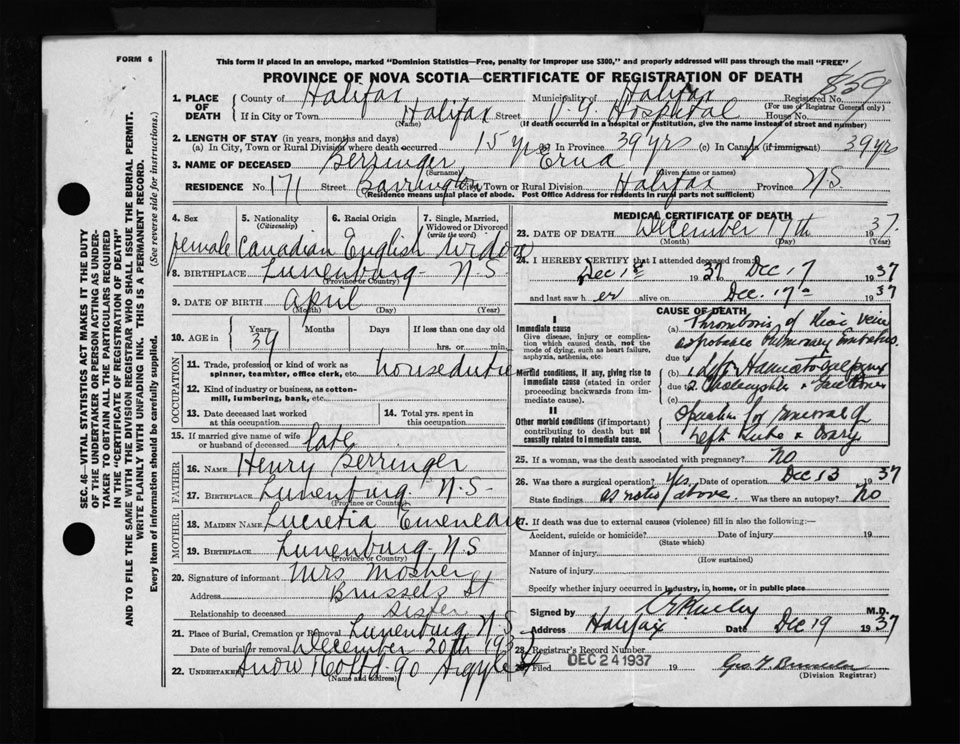 FORM 6
This form if placed in an envelope, marked "Dominion Statistics—Free, penalty for improper use $300," and properly addressed will pass through the mail "FREE"
PROVINCE OF NOVA SCOTIA—CERTIFICATE OF REGISTRATION OF DEATH
1. PLACE OF DEATH
County of Halifax Municipality of Halifax Registered No.
(For use of Registrar General only)
If in City or Town Halifax Street V. G. Hospital House No.
(Name) (If death occurred in a hospital or institution, give the name instead of street and number)
2. LENGTH OF STAY (in years, months and days)
(a) In City, Town or Rural Division where death occurred 15 yrs (b) In Province 39 yrs (c) In Canada (if immigrant) 39 yrs
3. NAME OF DECEASED Gerringer Erna
(Surname) (Given name or names)
RESIDENCE No. 171 Street Barrington City, Town or Rural Division Halifax Province N.S
(Residence means usual place of abode. Post Office Address for residents in rural parts not sufficient)
4. Sex female
5. Nationality (Citizenship) Canadian
6. Racial Origin English
7. Single, Married, Widowed or Divorced (write the word) widow
8. BIRTHPLACE Lunenburg - N.S.
(Province or Country)
9. DATE OF BIRTH April
(Month) (Day) (Year)
10. AGE in Years 39 Months Days If less than one day old
hrs. or min.
OCCUPATION
11. Trade, profession or kind of work as spinner, teamster, office clerk, etc. houseduties
12. Kind of industry or business, as cotton-mill, lumbering, bank, etc.
13. Date deceased last worked at this occupation
14. Total yrs. spent in this occupation
15. If married give name of wife or husband of deceased late
FATHER
16. NAME Henry Gerringer
17. Birthplace Lunenburg. N.S-
MOTHER
18. MAIDEN NAME Lucretia Emeneau
19. BIRTHPLACE Lunenburg - N.S
(Province or Country)
20. Signature of informant Mrs Mosher
Address Brussels St
Relationship to deceased sister
21. Place of Burial, Cremation or Removal Lunenburg N.S.
Date of burial or removal December 20th 1937
22. UNDERTAKER Snow & Co Ltd - 90 Argyle St
(Name and address)
MEDICAL CERTIFICATE OF DEATH
23. DATE OF DEATH December 17th 1937.
(Month) (Day) (Year)
24. I HEREBY CERTIFY that I attended deceased from:
1937 to Dec 17 1937
and last saw her alive on Dec. 17 1937
CAUSE OF DEATH
I
Immediate cause
Give disease, injury or complication which caused death, not the mode of dying, such as heart failure, asphyxia, asthenia, etc.
Morbid conditions, if any, giving rise to immediate cause (stated in order proceeding backwards from immediate cause).
II
Other morbid conditions (if important) contributing to death but not causally related to immediate cause.
(a) Thrombosis of Iliac vein
probable Pulmonary Embolus.
due to
(b)
due to
(c)
Operation for removal of
left tube & ovary
25. If a woman, was the death associated with pregnancy? no
26. Was there a surgical operation? Yes. Date of operation Dec 13 1937
State findings as noted above. Was there an autopsy? No
27. If death was due to external causes (violence) fill in also the following:—
Accident, suicide or homicide? Date of injury 19
(State which)
Manner of injury
(How sustained)
Nature of injury
Specify whether injury occurred in industry, in home, or in public place
Signed by M.D.
Address Halifax Date Dec 19 1937
28. Registrar's Record Number
29. Filed DEC 24 1937 19
(Division Registrar)
SEC. 46—VITAL STATISTICS ACT MAKES IT THE DUTY OF THE UNDERTAKER OR PERSON ACTING AS UNDERTAKER TO OBTAIN ALL THE PARTICULARS REQUIRED IN THE "CERTIFICATE OF REGISTRATION OF DEATH"
AND TO FILE THE SAME WITH THE DIVISION REGISTRAR WHO SHALL ISSUE THE BURIAL PERMIT.
WRITE PLAINLY WITH UNFADING INK. THIS IS A PERMANENT RECORD.
Every item of information should be carefully supplied. (See reverse side for instructions.)